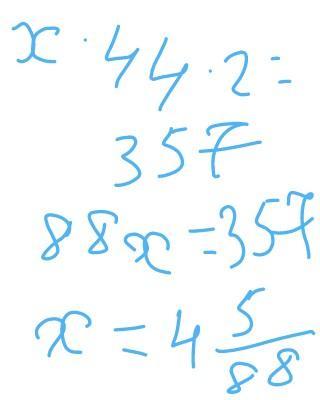 x · 44 · 2 =
357
88x = 357
x = 4 5/88